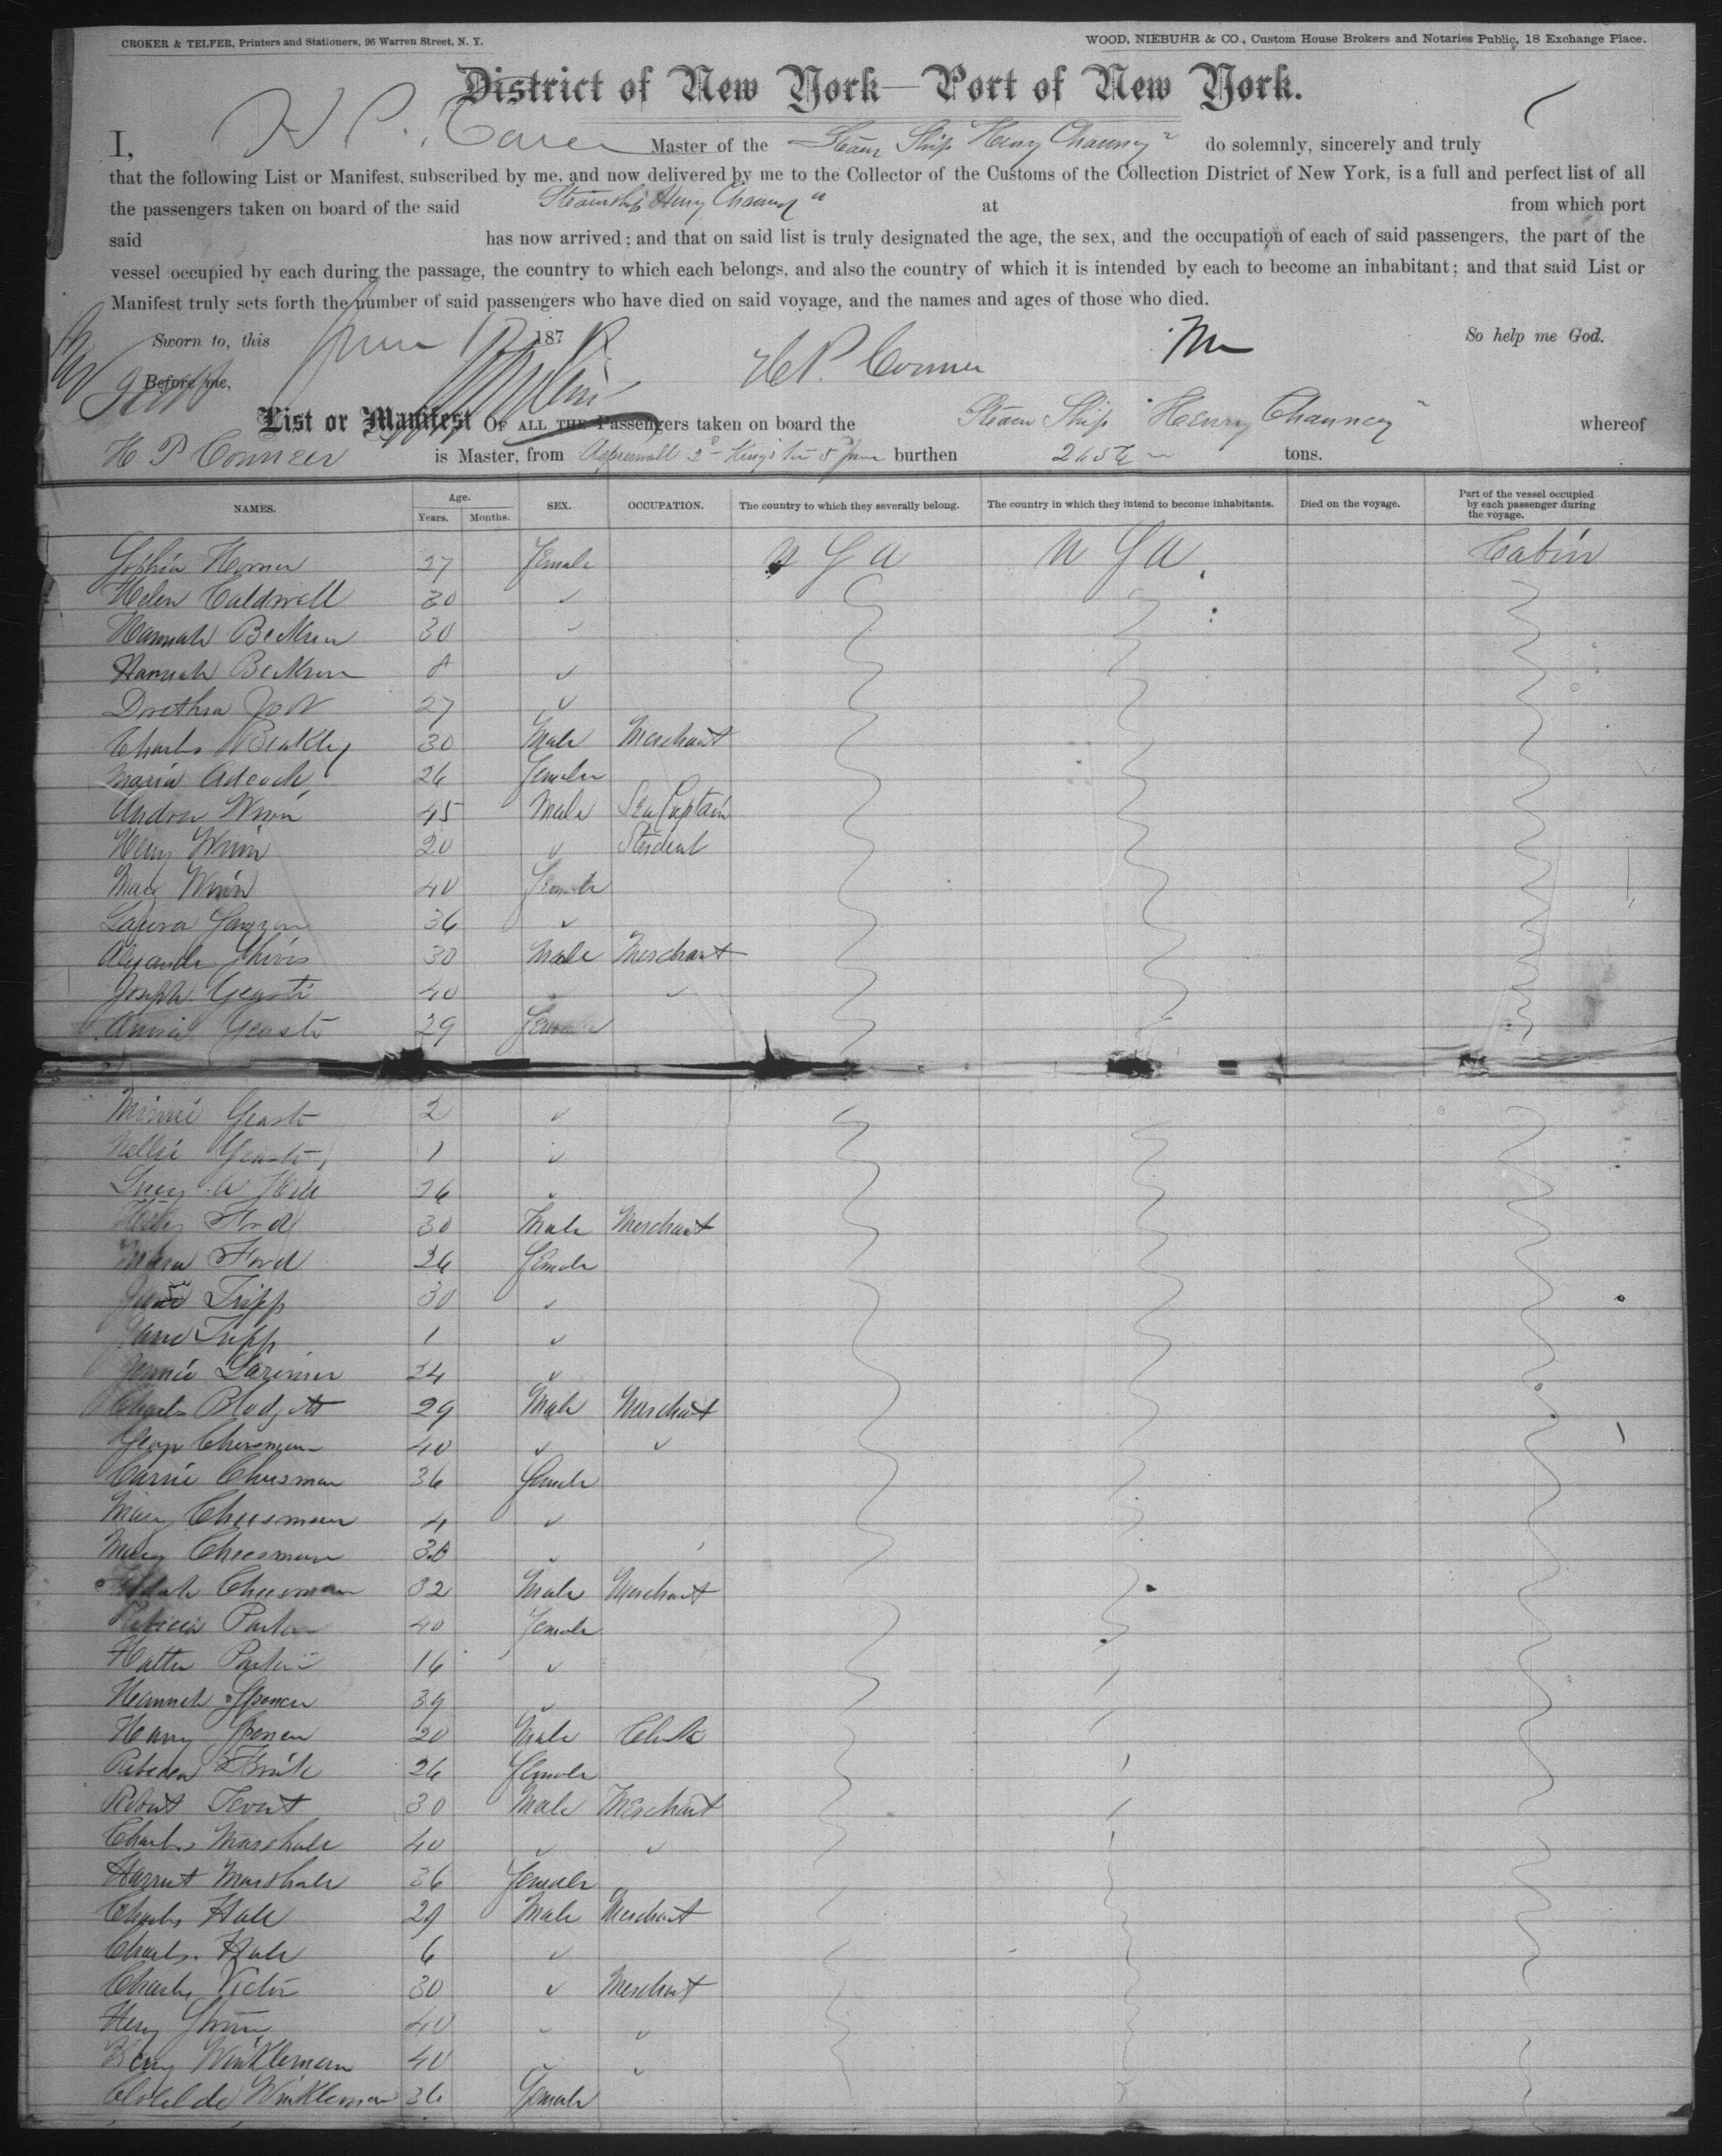 CROKER & TELFER, Printers and Stationers, 96 Warren Street, N. Y.
WOOD, NIEBUHR & CO., Custom House Brokers and Notaries Public, 18 Exchange Place.
District of New York—Port of New York.
I, H P. Master of the Steam Ship "Henry Chauncey" do solemnly, sincerely and truly
that the following List or Manifest, subscribed by me, and now delivered by me to the Collector of the Customs of the Collection District of New York, is a full and perfect list of all
the passengers taken on board of the said Steamship Henry Chauncey" at from which port
said has now arrived; and that on said list is truly designated the age, the sex, and the occupation of each of said passengers, the part of the
vessel occupied by each during the passage, the country to which each belongs, and also the country of which it is intended by each to become an inhabitant; and that said List or
Manifest truly sets forth the number of said passengers who have died on said voyage, and the names and ages of those who died.
Sworn to, this June 187 So help me God.
Before me, H P. Conner
List or Manifest OF ALL THE Passengers taken on board the Steam Ship "Henry Chauncey" whereof
H P Conner is Master, from Aspinwall Kingston 5 June burthen tons.
NAMES. Age. Years. Months. SEX. OCCUPATION. The country to which they severally belong. The country in which they intend to become inhabitants. Died on the voyage. Part of the vessel occupied by each passenger during the voyage.
Sophia Horner 27 Female U S A U S A Cabin
Helen Caldwell 30 ✓
Hannah 30 ✓
Hannah ✓
Dorethea 27 ✓
Charles 30 Male Merchant
Maria Adcock 26 Female
Andrew Winn 45 Male Sea Captain
Henry Winn 20 ✓ Student
Mary Winn 40 Female
Laura 36 ✓
30 Male Merchant
Joseph 40 ✓
Annie 29 Female
Minnie 2 ✓
Nellie 1 ✓
Lucy A Hill 26 ✓
Ford 30 Male Merchant
Ford 26 Female
Tripp 30 ✓
Jane Tripp 1 ✓
Jennie Larimer 34 ✓
Charles Blodgett 29 Male Merchant
Cheesman 40 ✓ ✓
Carrie Cheesman 36 Female
Mary Cheesman 4 ✓
Mary Cheesman 30 ✓
Cheesman 32 Male Merchant
Rebecca Parker 40 Female
Hattie Parker 16 ✓
Hannah Spencer 39 ✓
Harry Spencer 20 Male Clerk
Rebecca 26 Female
Robert 30 Male Merchant
Charles Marshall 40 ✓ ✓
Harriet Marshall 36 Female
Charles Hale 29 Male Merchant
Charles Hale 6 ✓
Charles Victor 30 ✓ Merchant
Henry 40 ✓ ✓
Henry Winkleman 40 ✓ ✓
Clotilde Winkleman 36 Female